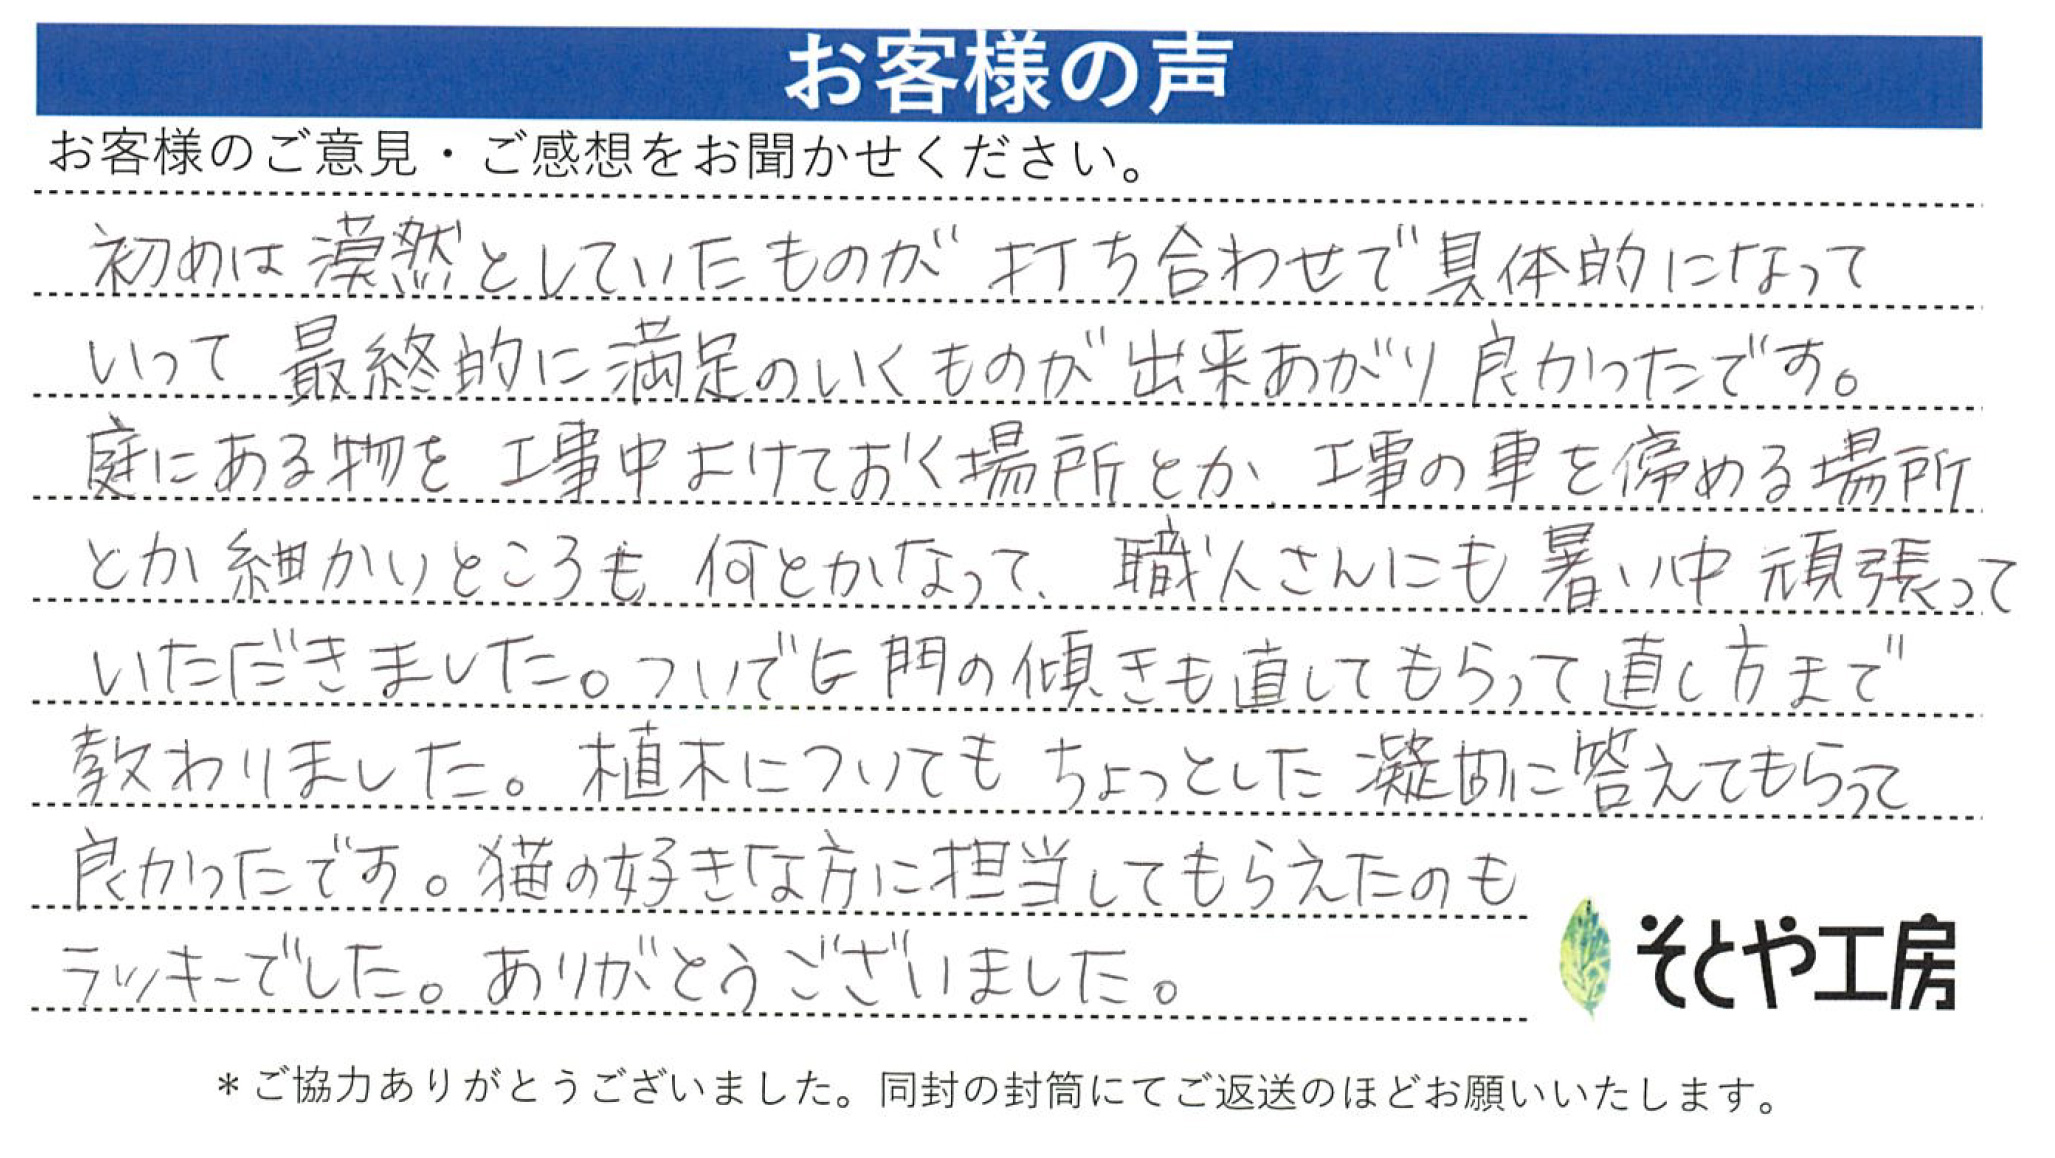 お客様の声
お客様のご意見・ご感想をお聞かせください。
初めは漠然としていたものが 打ち合わせで具体的になって
いって 最終的に満足のいくものが出来あがり 良かったです。
庭にある物を 工事中よけておく場所とか、工事の車を停める場所
とか細かいところも 何とかなって、職人さんにも暑い中 頑張って
いただきました。ついでに門の傾きも直してもらって直し方まで
教わりました。植木についても ちょっとした 凝問に答えてもらって
良かったです。猫の好きな方に担当してもらえたのも
ラッキーでした。ありがとうございました。
そとや工房
＊ご協力ありがとうございました。同封の封筒にてご返送のほどお願いいたします。